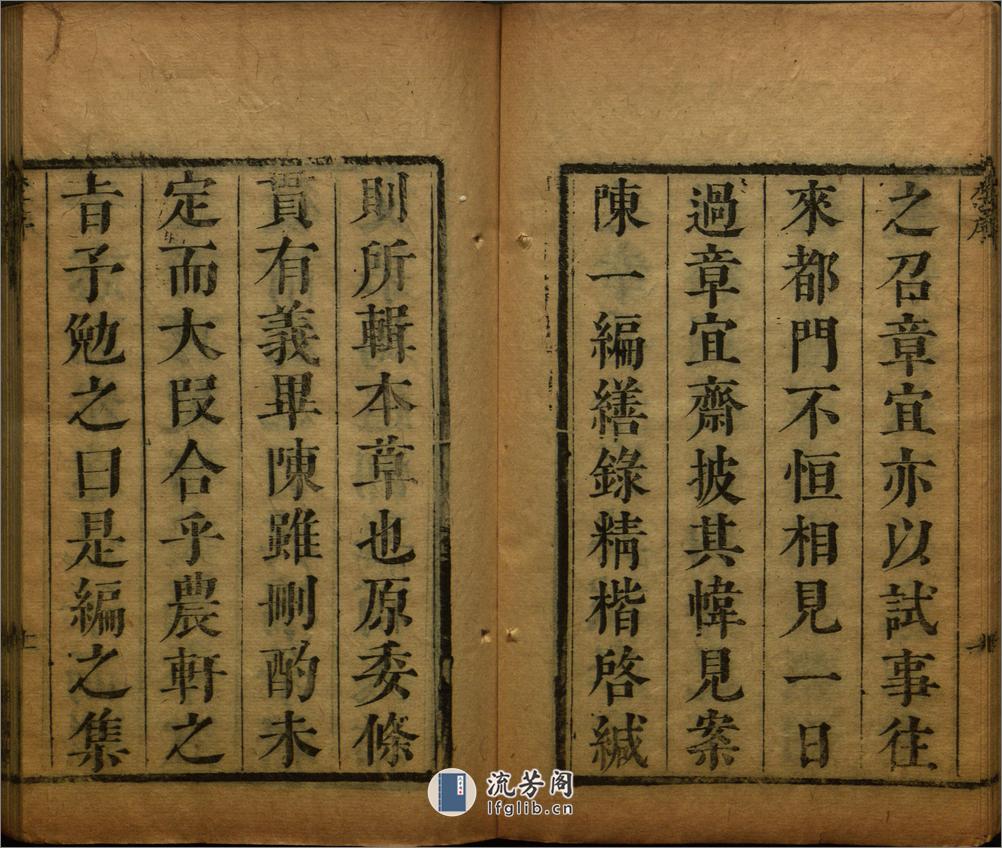 之召章宜亦以試事往
來都門不恒相見一日
過章宜齋披其幃見案
陳一編繕錄精楷啓緘
則所輯本草也原委條
貫有義畢陳雖刪酌未
定而大段合乎農軒之
旨予勉之曰是編之集
流芳阁
lfglib.cn